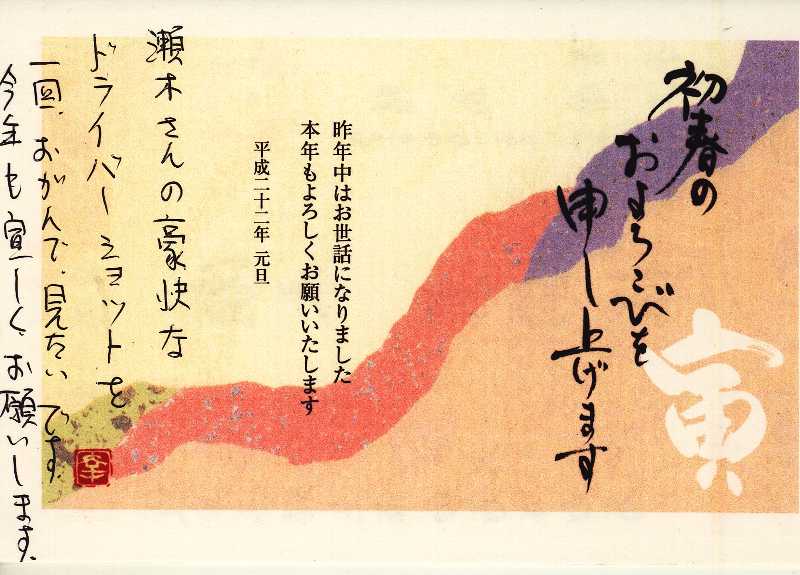 初春の
およろこびを
申し上げます
寅
昨年中はお世話になりました
本年もよろしくお願いいたします
平成二十二年 元旦
瀬木さんの豪快な
ドライバーショットを
一回、おがんで、見たいです。
今年も宜しく、お願いします。